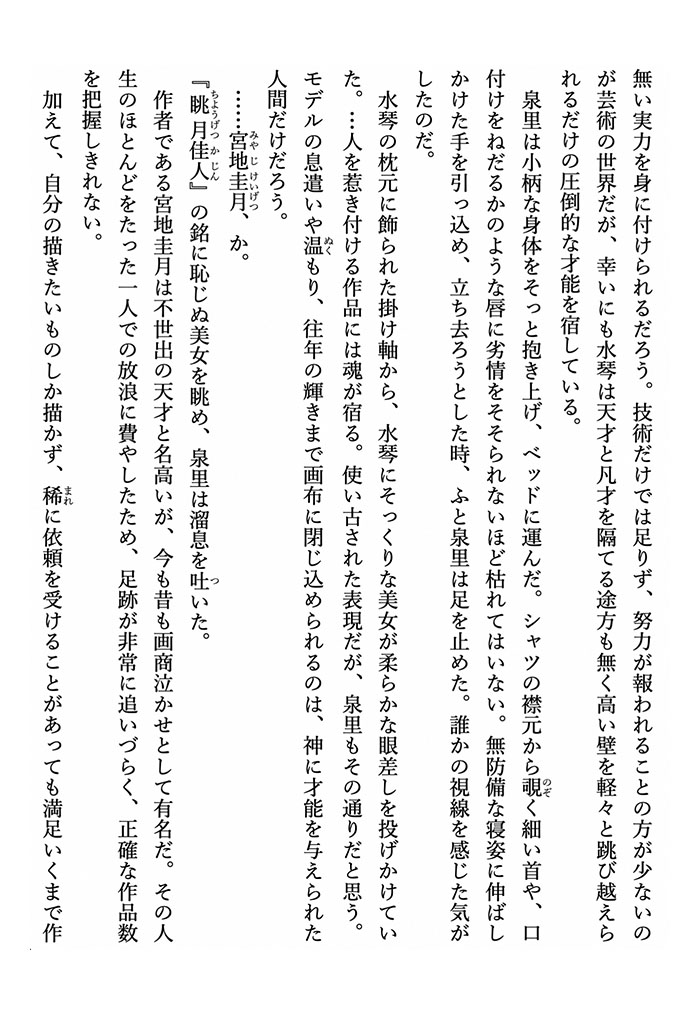 無い実力を身に付けられるだろう。技術だけでは足りず、努力が報われることの方が少ないの
が芸術の世界だが、幸いにも水琴は天才と凡才を隔てる途方も無く高い壁を軽々と跳び越えら
れるだけの圧倒的な才能を宿している。
　泉里は小柄な身体をそっと抱き上げ、ベッドに運んだ。シャツの襟元から覗く細い首や、口
付けをねだるかのような唇に劣情をそそられないほど枯れてはいない。無防備な寝姿に伸ばし
かけた手を引っ込め、立ち去ろうとした時、ふと泉里は足を止めた。誰かの視線を感じた気が
したのだ。
　水琴の枕元に飾られた掛け軸から、水琴にそっくりな美女が柔らかな眼差しを投げかけてい
た。…人を惹き付ける作品には魂が宿る。使い古された表現だが、泉里もその通りだと思う。
モデルの息遣いや温もり、往年の輝きまで画布に閉じ込められるのは、神に才能を与えられた
人間だけだろう。
　……宮地圭月、か。
『眺月佳人』の銘に恥じぬ美女を眺め、泉里は溜息を吐いた。
　作者である宮地圭月は不世出の天才と名高いが、今も昔も画商泣かせとして有名だ。その人
生のほとんどをたった一人での放浪に費やしたため、足跡が非常に追いづらく、正確な作品数
を把握しきれない。
　加えて、自分の描きたいものしか描かず、稀に依頼を受けることがあっても満足いくまで作